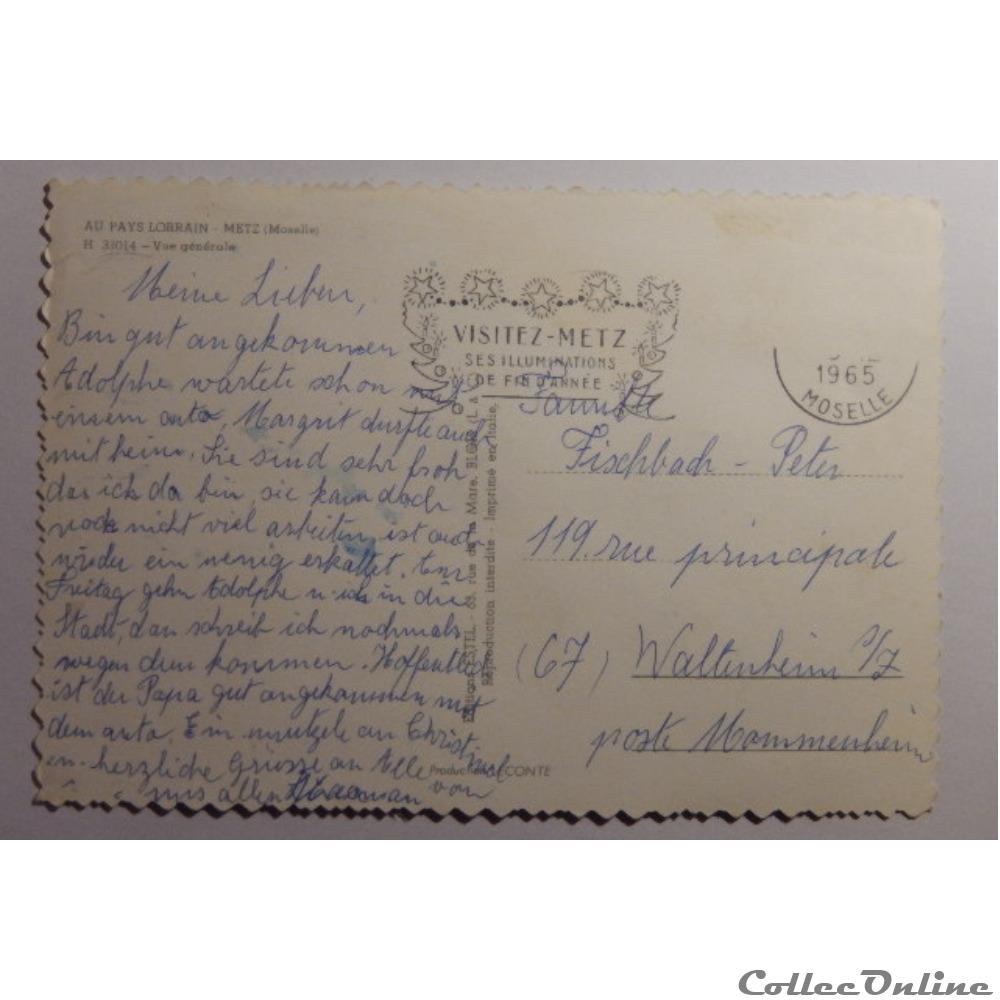 AU PAYS LORRAIN - METZ (Moselle)
H 33014 - Vue générale
Meine Lieben,
Bin gut angekommen
Adolphe wartete schon mit
einsem auto, Margrit durfte auch
mit heim. Sie sind sehr froh
das ich da bin, sie kann doch
noch nicht viel arbeiten, ist auch
wieder ein wenig erkaltet. Am
Freitag gehn Adolphe u. ich in die
Stadt, dan schreib ich nochmals
wegen dem kommen. Hoffentlich
ist der Papa gut angekommen mit
dem auto. Ein mutzele an Christ
en. herzliche Grüsse an Alle
von
uns allen
VISITEZ-METZ
SES ILLUMINATIONS
DE FIN D'ANNÉE
1965
MOSELLE
Famille
Fischbach - Peter
119. rue principale
(67) Waltenheim s/Z
poste Mommenheim
63, rue de la Mare, BLOIS (L. &
Reproduction interdite - Imprimé en Italie
CollecOnline